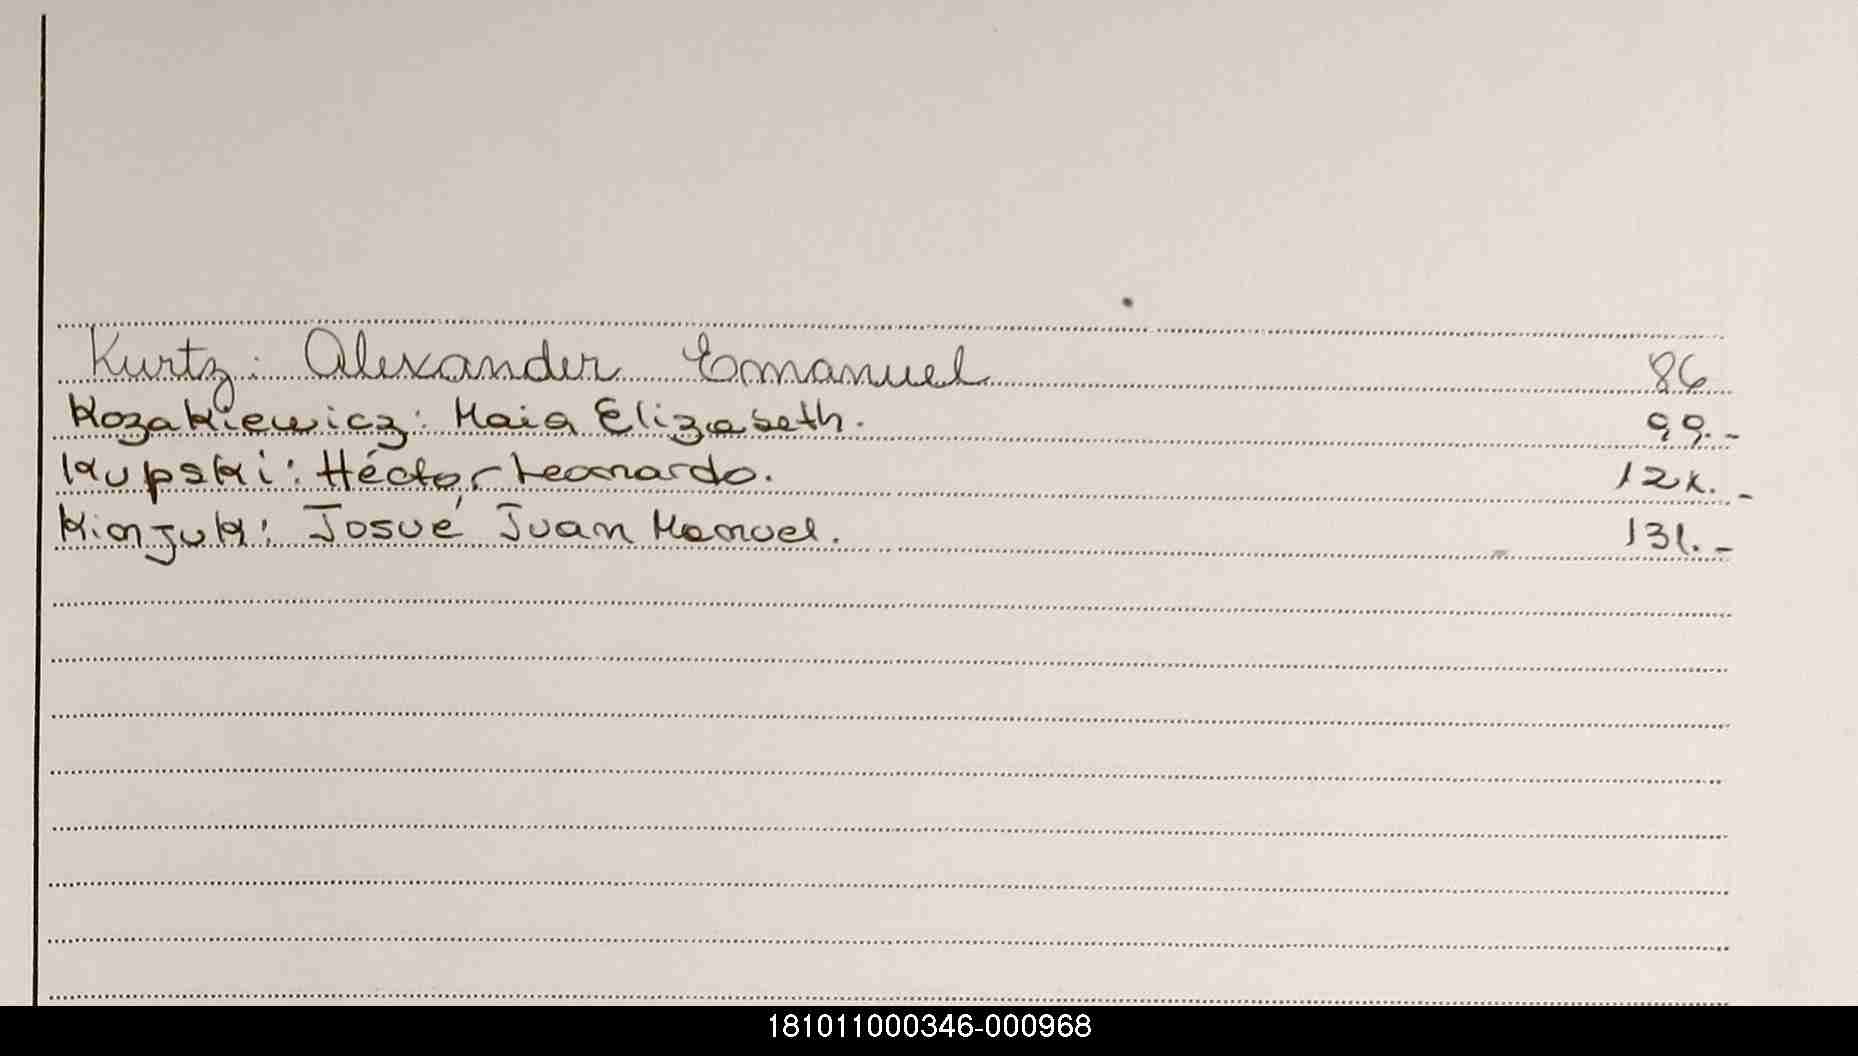 Kurtz: Alexander Emmanuel 86
Kozakiewicz: Maia Elizabeth. 99.-
Kupski: Héctor Leonardo. 124.-
Kinjuk: Josué Juan Manuel. 131.-
181011000346-000968